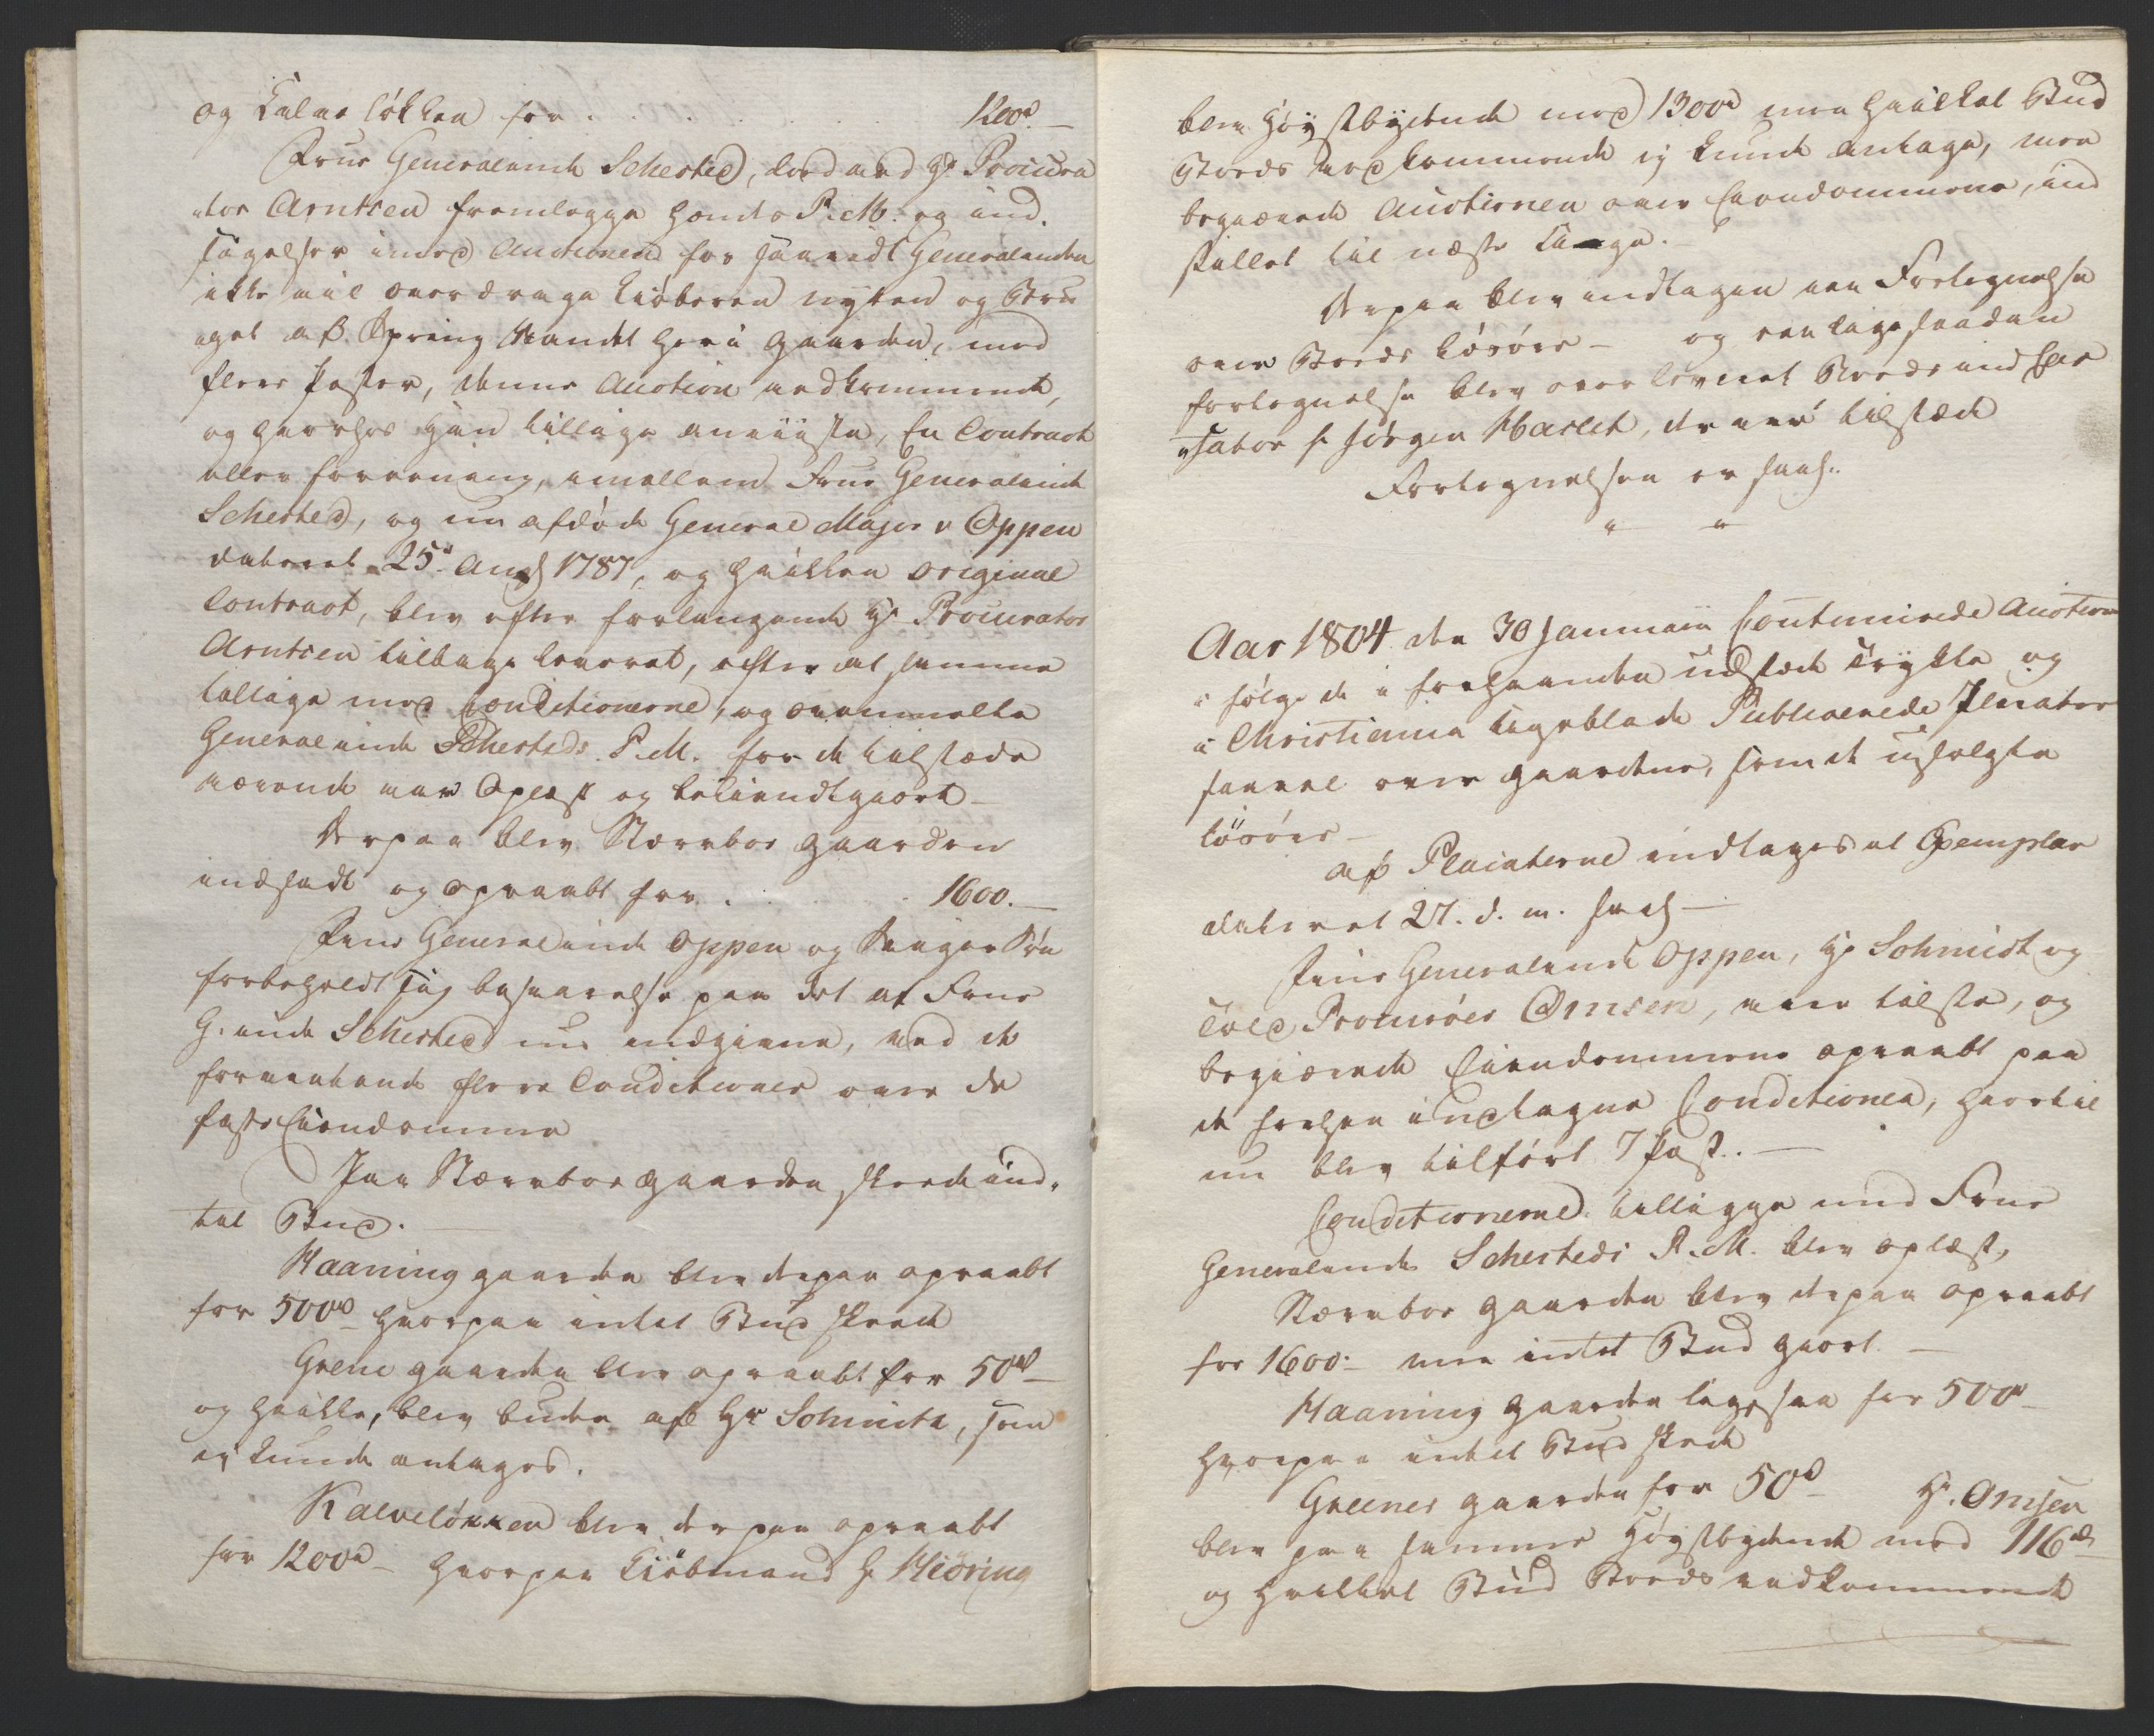 og Kalve løkken for . . . . . 1200d. —
Frue Generalinde Schested, lod ved Hr Procura
„tor Arntsen fremlegge hendes P. M. og ind.
sigelser imod Auctionen for saavidt Generalinden
ikke vil overdrage Kiøberen nytten og Bru
„get af Spring Vandet her i Gaarden, med
flere Poster, denne Auction vedkommende,
og hvorhos han tillige anviiste, En Contract
eller forening, imellem Frue Generalinde
Schested, og nu afdøde General Major v Oppen
dateret 25d Aug 1787, og hvilken original
Contract, blev efter forlangende Hr Procurator
Arntsen tilbage leveret, efter at samme
tillige med Conditionerne, og ovenmelte
Generalinde Schesteds P. M. for de tilstæde
værende var Oplæst og bekiendtgiort —
Derpaa blev Nærrboe gaarden
indsadt og opraabt for . . . 1600. —
Frue Generalinde Oppen og Krigs
forbeholdt sig besvarelse paa det af Frue
G. inde Schested nu indgivne, ved de
formentende flere Conditioner over de
faste Eiendomme
Paa Nærrboe Gaarden skeede ind„
tet Bud. —
Haaning gaarden blev derpaa opraabt
for 500d hvorpaa intet Bud skeede
Grene gaarden blev opraabt for 50d —
og hvilke, blev buden af Hr Schmidt, som
ej kunde antages.
Kalveløkken blev derpaa opraabt
for 1200d — hvorpaa Kiøbmand Hr Hiøring
blev Høystbydende med 1300d men hvilket Bud
Boeds vedkommende ej kunde antage, men
begiærede Auctionen over Eiendommene, ud
stillet til næste Dage. —
Derpaa blev indtagen een Fortegnelse
over Boeds Løsøre — og een lige saadan
fortegnelse blev overleveret Boeds ind Cas
„sator Hr Jørgen Harlet, der var tilstæde
Fortegnelsen er saal.
„ „
Aar 1804 den 30 Januarii Continuerede Auction
i følge de i forhaanden udstæde trykte og
i Christiania Ugeblade Publicerede Placater
saavel over gaardene, som de usolgte
Løsøre —
af Placaterne indtages et Exemplar
dateret 27. d. m. saal —
Frue Generalinde Oppen, Hr Schmidt og
Told Procurør Omsen, vare tilste, og
begiærede Eiendommene opraabt paa
de forhen indtagne Conditioner, hvortil
nu blev tilført 7 Post. —
Conditionerne tillige med Frue
Generalinde Schesteds P. M. blev oplæst,
Nærrboe gaarden blev derpaa opraabt
for 1600 — men intet Bud giort —
Haaning gaarden ligesaa for 500d
hvorpaa intet Bud skede
Greenes gaarden for 50d — Hr. Omsen
blev paa samme Høystbydende med 116d
og hvilket Bud Boeds vedkommende